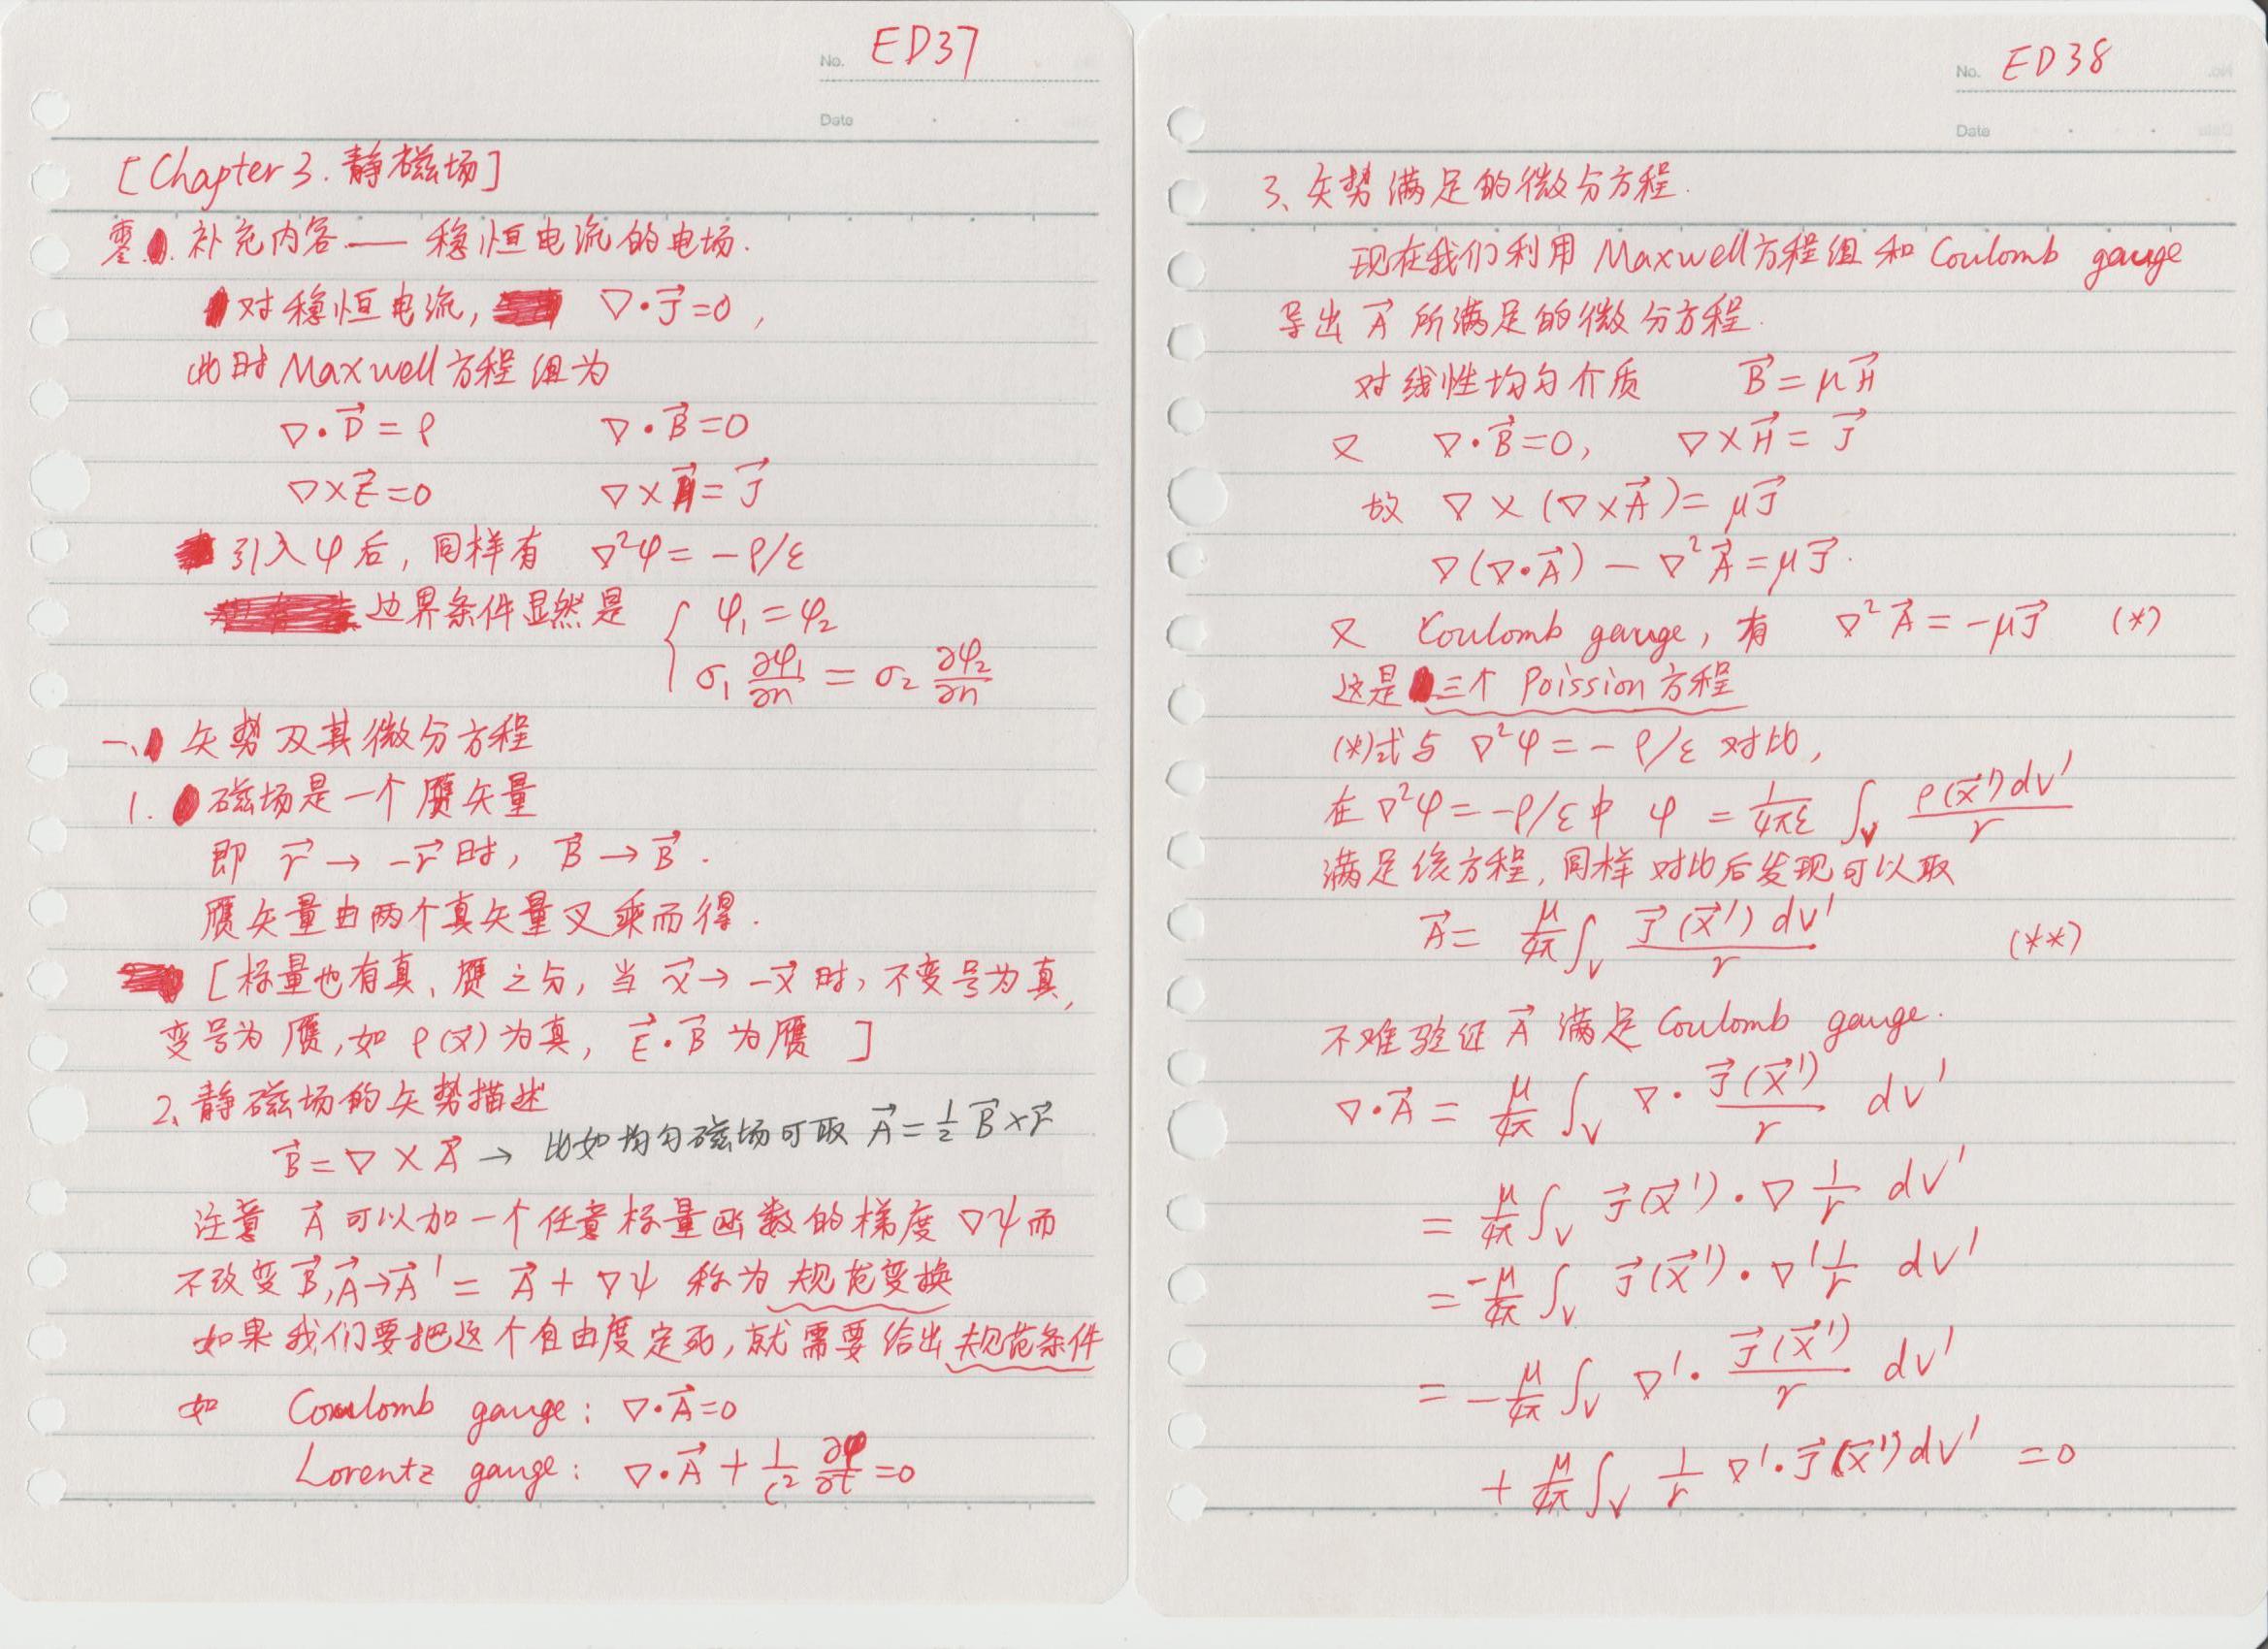 No. ED37
Date
[Chapter 3. 静磁场]
零. 补充内容 —— 稳恒电流的电场.
对稳恒电流, ∇·J⃗=0,
此时 Maxwell 方程组为
∇·D⃗=ρ ∇·B⃗=0
∇×E⃗=0 ∇×H⃗=J⃗
引入φ后, 同样有 ∇²φ=-ρ/ε
边界条件显然是 { φ₁=φ₂
σ₁ ∂φ₁/∂n = σ₂ ∂φ₂/∂n
一、矢势及其微分方程
1. 磁场是一个赝矢量
即 r⃗→-r⃗ 时, B⃗→B⃗.
赝矢量由两个真矢量叉乘而得.
[标量也有真、赝之分, 当 x⃗→-x⃗ 时, 不变号为真,
变号为赝, 如 ρ(x⃗) 为真, E⃗·B⃗ 为赝]
2、静磁场的矢势描述
B⃗=∇×A⃗ → 比如均匀磁场可取 A⃗=½ B⃗×r⃗
注意 A⃗ 可以加一个任意标量函数的梯度 ∇ψ 而
不改变 B⃗, A⃗→A⃗'=A⃗+∇ψ 称为规范变换
如果我们要把这个自由度定死, 就需要给出规范条件
如 Coulomb gauge: ∇·A⃗=0
Lorentz gauge: ∇·A⃗+1/c² ∂φ/∂t=0
No. ED38
Date
3、矢势满足的微分方程.
现在我们利用 Maxwell 方程组和 Coulomb gauge
导出 A⃗ 所满足的微分方程.
对线性均匀介质 B⃗=μH⃗
又 ∇·B⃗=0, ∇×H⃗=J⃗
故 ∇×(∇×A⃗)=μJ⃗
∇(∇·A⃗)-∇²A⃗=μJ⃗.
又 Coulomb gauge, 有 ∇²A⃗=-μJ⃗ (*)
这是三个 Poission 方程
(*)式与 ∇²φ=-ρ/ε 对比,
在 ∇²φ=-ρ/ε 中 φ = 1/4πε ∫_V ρ(x⃗')dV'/r
满足该方程, 同样对比后发现可以取
A⃗= μ/4π ∫_V J⃗(x⃗')dV'/r (**)
不难验证 A⃗ 满足 Coulomb gauge.
∇·A⃗ = μ/4π ∫_V ∇·J⃗(x⃗')/r dV'
= μ/4π ∫_V J⃗(x⃗')·∇ 1/r dV'
= -μ/4π ∫_V J⃗(x⃗')·∇' 1/r dV'
= -μ/4π ∫_V ∇'·J⃗(x⃗')/r dV'
+ μ/4π ∫_V 1/r ∇'·J⃗(x⃗')dV' =0